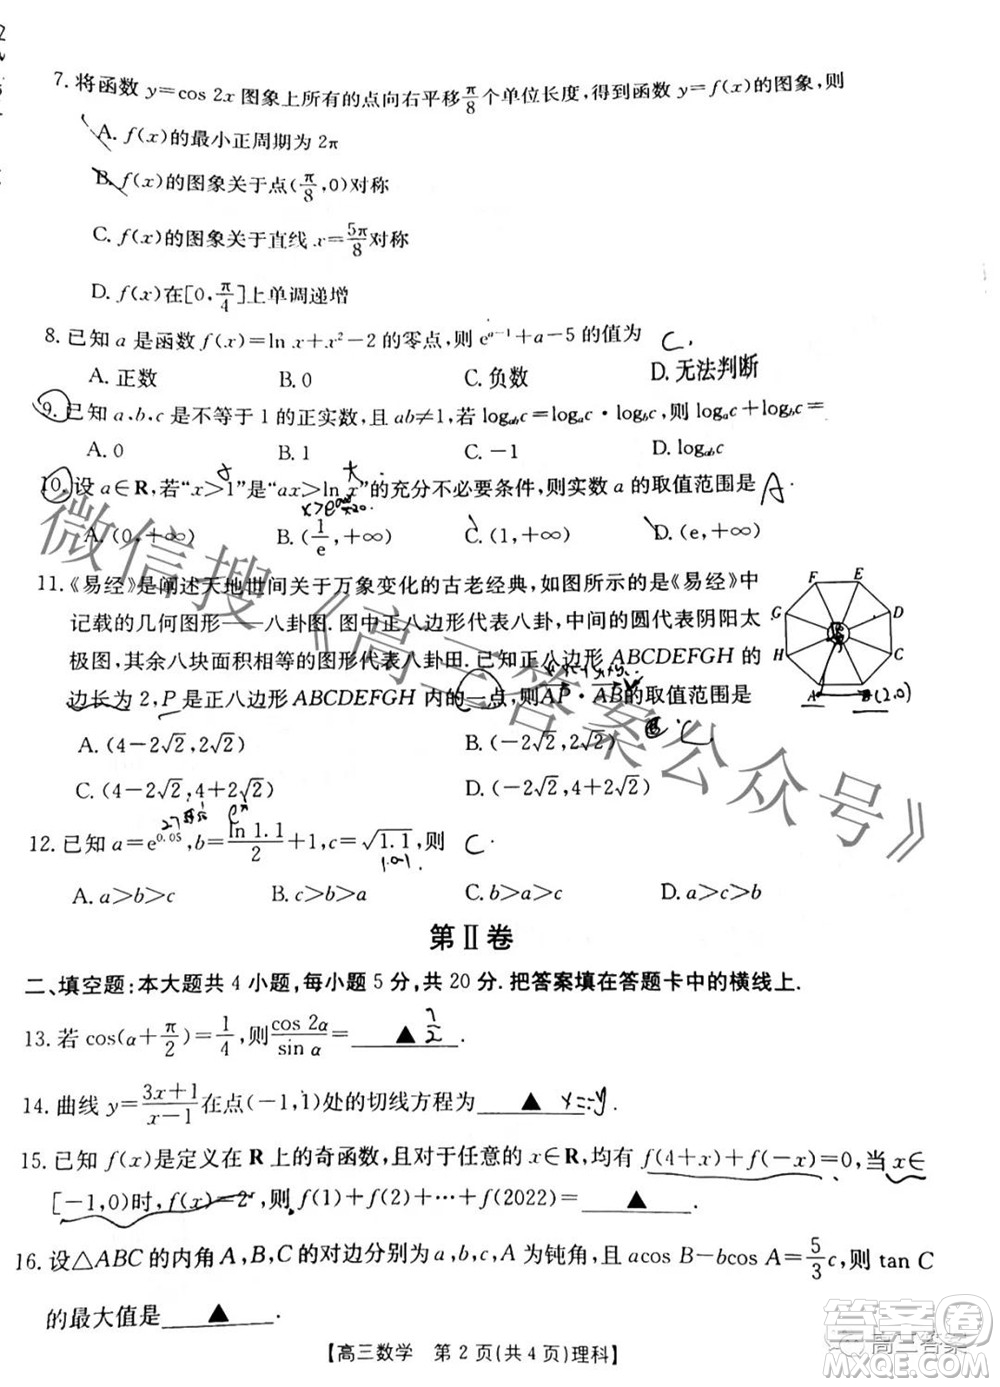 7. 将函数 y=cos 2x 图象上所有的点向右平移π/8个单位长度,得到函数 y=f(x)的图象,则
A. f(x)的最小正周期为 2π
B. f(x)的图象关于点(π/8,0)对称
C. f(x)的图象关于直线 x=5π/8对称
D. f(x)在[0,π/4]上单调递增
8. 已知 a 是函数 f(x)=ln x+x²-2 的零点,则 e^(a-1)+a-5 的值为 C.
A. 正数 B. 0 C. 负数 D. 无法判断
9. 已知 a,b,c 是不等于 1 的正实数,且 ab≠1,若 log_(ab)c=log_a c·log_b c,则 log_a c+log_b c=
A. 0 B. 1 C. -1 D. log_(ab)c
10. 设 a∈R,若“x>1”是“ax>ln x”的充分不必要条件,则实数 a 的取值范围是 A.
A. (0,+∞) B. (1/e,+∞) C. (1,+∞) D. (e,+∞)
11.《易经》是阐述天地世间关于万象变化的古老经典,如图所示的是《易经》中
记载的几何图形——八卦图. 图中正八边形代表八卦,中间的圆代表阴阳太
极图,其余八块面积相等的图形代表八卦田. 已知正八边形 ABCDEFGH 的
边长为 2,P 是正八边形 ABCDEFGH 内的一点,则AP·AB的取值范围是
F E
G D
H C
A B(2,0)
C
A. (4-2√2,2√2) B. (-2√2,2√2)
C. (4-2√2,4+2√2) D. (-2√2,4+2√2)
12. 已知 a=e^0.05,b=ln 1.1/2+1,c=√1.1,则 C.
A. a>b>c B. c>b>a C. b>a>c D. a>c>b
第Ⅱ卷
二、填空题:本大题共 4 小题,每小题 5 分,共 20 分. 把答案填在答题卡中的横线上.
13. 若 cos(α+π/2)=1/4,则cos 2α/sin α=▲.
14. 曲线 y=3x+1/x-1在点(-1,1)处的切线方程为▲.
15. 已知 f(x)是定义在 R 上的奇函数,且对于任意的 x∈R,均有 f(4+x)+f(-x)=0,当 x∈
[-1,0)时,f(x)=2^x,则 f(1)+f(2)+…+f(2022)=▲.
16. 设△ABC 的内角 A,B,C 的对边分别为 a,b,c,A 为钝角,且 acos B-bcos A=5/3c,则 tan C
的最大值是▲.
【高三数学 第 2 页(共 4 页)理科】
微信搜《高三答案公众号》
高三答案
答案圈
MXQE.COM